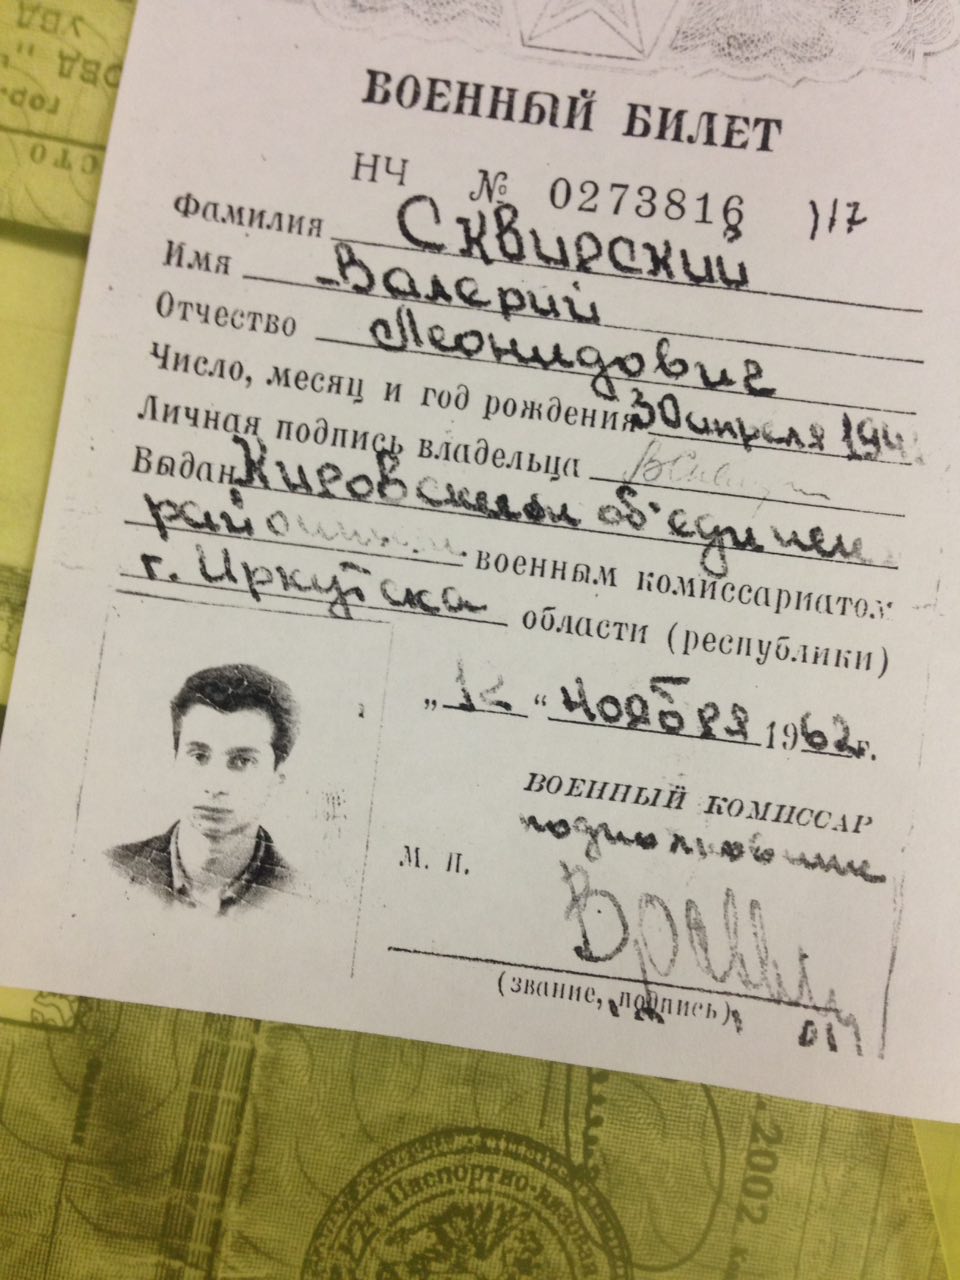 ВОЕННЫЙ БИЛЕТ
НЧ № 0273816 117
Фамилия Сквирский
Имя Валерий
Отчество Леонидович
Число, месяц и год рождения 30 апреля 194
Личная подпись владельца
Выдан Кировским об'единен
районным военным комиссариатом
г. Иркутска области (республики)
„12“ ноября 1962 г.
ВОЕННЫЙ КОМИССАР
подполковник
М. П.
(звание, подпись)
Паспортно-визовая
2002
УВД
ОВД"
гор.